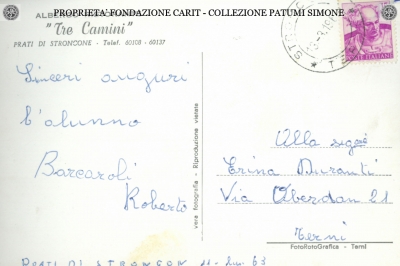 PROPRIETA' FONDAZIONE CARIT - COLLEZIONE PATUMI SIMONE
"Tre Camini"
PRATI DI STRONCONE - Telef. 60108 - 60137
Sinceri auguri
l'alunno
Barcaroli
Roberto
vera fotografia - Riproduzione vietata
POSTE ITALIANE
Alla sig.ra
Erina Muranti
Via Oberdan 21
Terni
FotoRotoGrafica - Terni
PRATI DI STRONCON